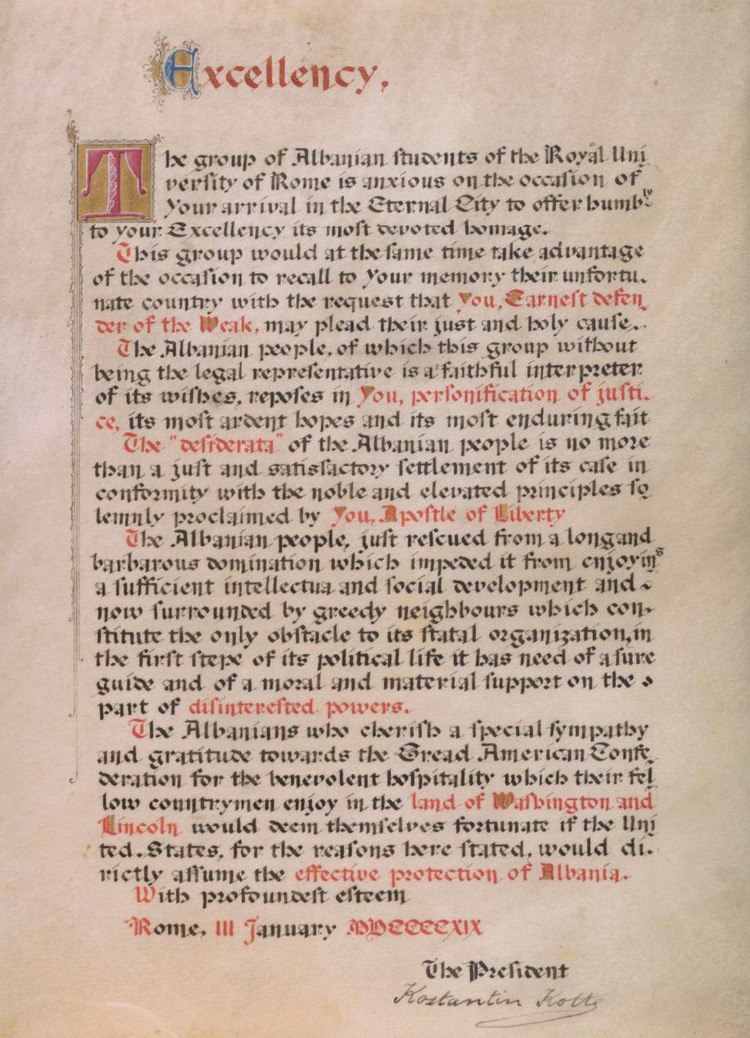 Excellency,
The group of Albanian students of the Royal Uni
versity of Rome is anxious on the occasion of
Your arrival in the Eternal City to offer humbly
to your Excellency its most devoted homage.
This group would at the same time take advantage
of the occasion to recall to your memory their unfortu-
nate country with the request that You, Earnest defen
der of the Weak, may plead their just and holy cause.
The Albanian people, of which this group without
being the legal representative is a faithful interpreter
of its wishes, reposes in You, personification of justi-
ce, its most ardent hopes and its most enduring fait
The "desiderata" of the Albanian people is no more
than a just and satisfactory settlement of its case in
conformity with the noble and elevated principles so
lemnly proclaimed by You, Apostle of Liberty
The Albanian people, just rescued from a long and
barbarous domination which impeded it from enjoying
a sufficient intellectua and social development and
now surrounded by greedy neighbours which con-
stitute the only obstacle to its statal organization, in
the first stepe of its political life it has need of a sure
guide and of a moral and material support on the
part of disinterested powers.
The Albanians who cherish a special sympathy
and gratitude towards the Gread American Confe-
deration for the benevolent hospitality which their fel
low countrymen enjoy in the land of Washington and
Lincoln would deem themselves fortunate if the Uni
ted. States, for the reasons here stated, would di-
rictly assume the effective protection of Albania.
With profoundest esteem
Rome, III January MDCCCCXIX
The President
Kostantin Kotte